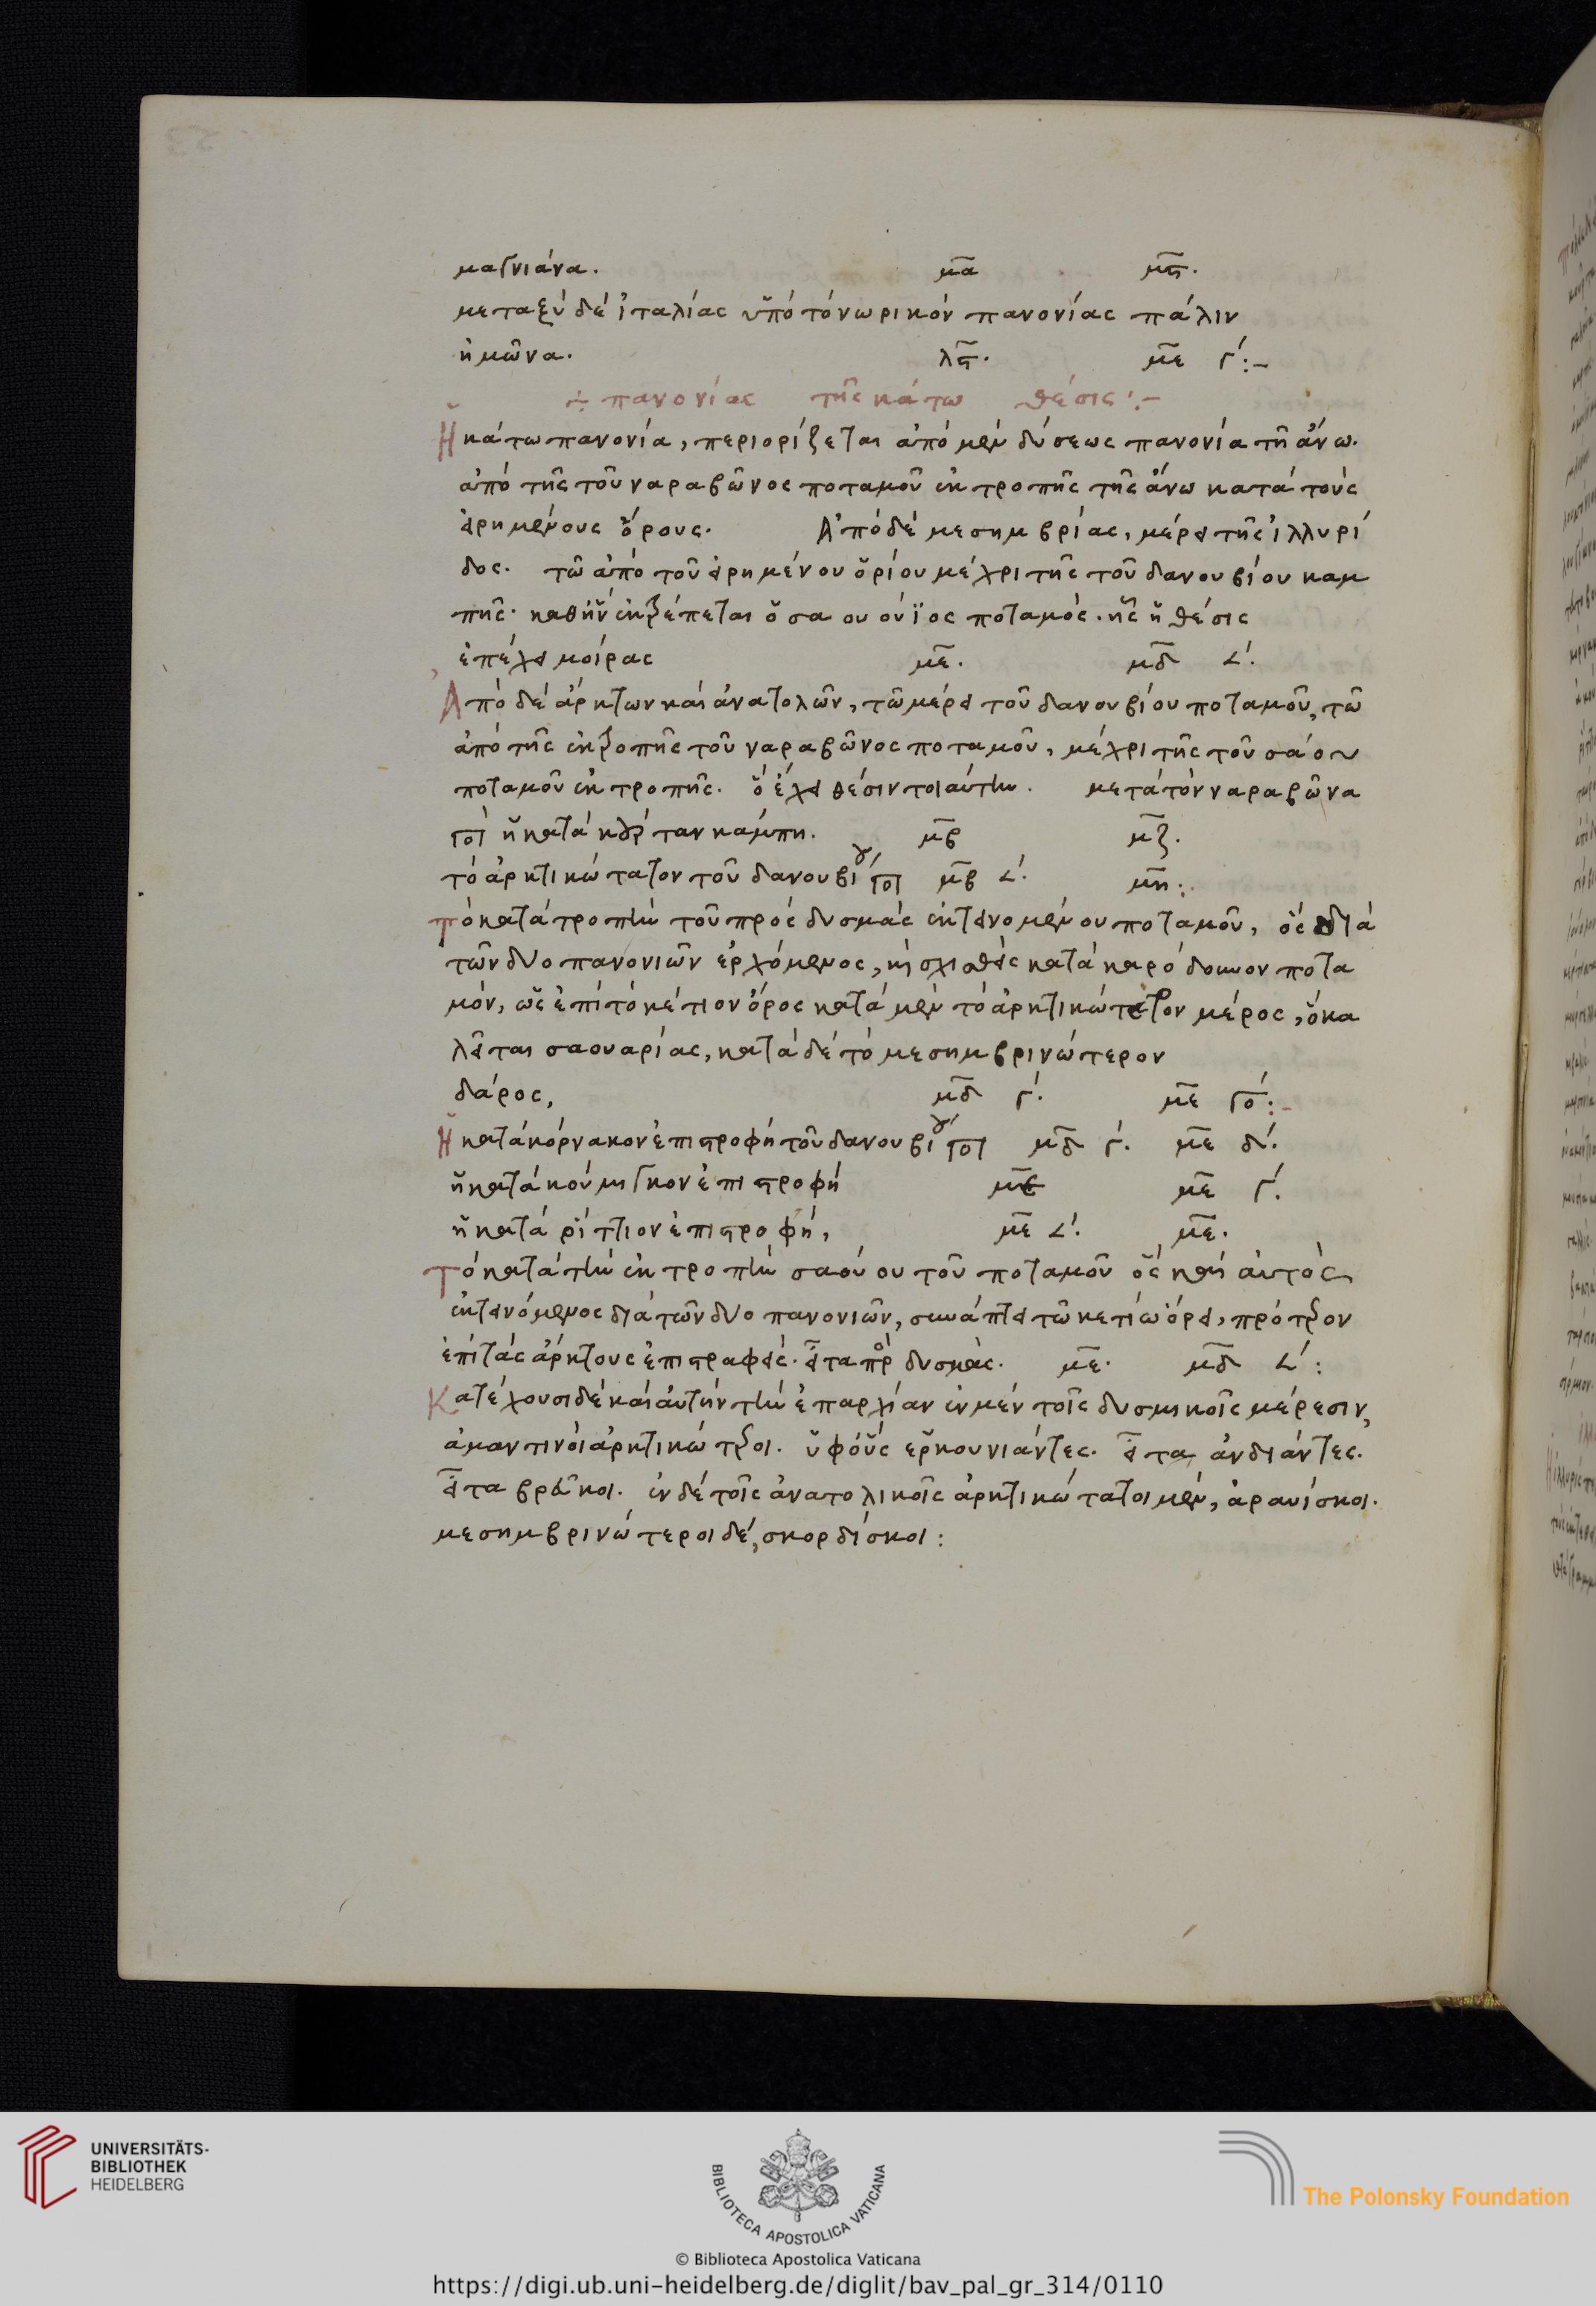 μαγνιάνα. μα μς.
μεταξὺ δὲ ἰταλίας ὑπὸ τὸ νωρικὸν πανονίας πάλιν
ἡμῶνα. λς. με γ´:-
÷ πανονίας τῆς κάτω θέσις:-
Ἡ κάτω πανονία, περιορίζεται ἀπὸ μὲν δύσεως πανονία τῆ ἄνω.
ἀπὸ τῆς τοῦ ναραβῶνος ποταμοῦ ἐκτροπῆς τῆς ἄνω κατὰ τοὺς
εἰρημένους ὅρους. Ἀπὸ δὲ μεσημβρίας, μέρει τῆς ἰλλυρί
δος. τῶ ἀπὸ τοῦ εἰρημένου ὁρίου μέχρι τῆς τοῦ δανουβίου καμ
πῆς. καθ' ἣν ἐκτρέπεται ὁ σαουούϊος ποταμὸς. ἧς ἡ θέσις
ἐπέχει μοίρας με. μδ 𐅵´.
Ἀπὸ δὲ ἄρκτων καὶ ἀνατολῶν, τῶ μέρει τοῦ δανουβίου ποταμοῦ, τῶ
ἀπὸ τῆς ἐκτροπῆς τοῦ ναραβῶνος ποταμοῦ, μέχρι τῆς τοῦ σάου
ποταμοῦ ἐκτροπῆς. ὃ ἔχει θέσιν τοιαύτην. μετὰ τὸν ναραβῶνα
ποτ ἡ κατὰ κούρταν κάμπη. μβ μζ.
τὸ ἀρκτικώτατον τοῦ δανουβίου ποτ μβ 𐅵´. μη:
τὸ κατὰ τροπὴν τοῦ πρὸς δυσμὰς ἐκτεινομένου ποταμοῦ, ὃς διὰ
τῶν δυο πανονιῶν ἐρχόμενος, κὶ σχισθεὶς κατὰ καρόδουνον ποτα
μὸν, ὡς ἐπὶ τὸ κέτιον ὄρος κατὰ μὲν τὸ ἀρκτικώτατον μέρος, ὃ κα
λεῖται σαουαρίας, κατὰ δὲ τὸ μεσημβρινώτερον
δάρος, μδ γ´. με γο´:-
Ἡ κατὰ κόρνακον ἐπιστροφὴ τοῦ δανουβίου ποτ μδ γ´. με δ´.
ἡ κατὰ κούμιγκον ἐπιστροφή με με γ´.
ἡ κατὰ ρίττιον ἐπιστροφή, με 𐅵´. με.
τὸ κατὰ τὴν ἐκτροπὴν σαούου τοῦ ποταμοῦ ὃς καὶ αὐτὸς
ἐκτεινόμενος διὰ τῶν δυο πανονιῶν, συνάπτει τῶ κετίω ὄρει, πρότερον
ἐπὶ τὰς ἄρκτους ἐπιστραφείς. εἶτα πρ δυσμὰς. με. μδ 𐅵´:
Κατέχουσι δὲ καὶ αὐτὴν τὴν ἐπαρχίαν ἐν μὲν τοῖς δυσμικοῖς μέρεσιν,
ἀμαντινοὶ ἀρκτικώτεροι. ὑφ' οὓς ἑρκουνιάντες. εἶτα ἀνδιάντες.
εἶτα βρεῦκοι. ἐν δὲ τοῖς ἀνατολικοῖς ἀρκτικώτατοι μὲν, ἀραυίσκοι.
μεσημβρινώτεροι δὲ, σκορδίσκοι:
UNIVERSITÄTS-
BIBLIOTHEK
HEIDELBERG
BIBLIOTECA APOSTOLICA VATICANA
The Polonsky Foundation
© Biblioteca Apostolica Vaticana
https://digi.ub.uni-heidelberg.de/diglit/bav_pal_gr_314/0110